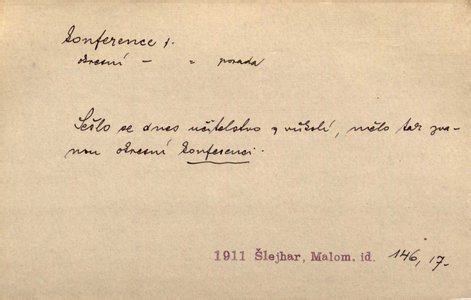 konference f.
okresní – „ porada
Sešlo se dnes učitelstvo z vůkolí, mělo tak zva-
nou okresní konferenci.
1911 Šlejhar, Malom. id. 146, 17.